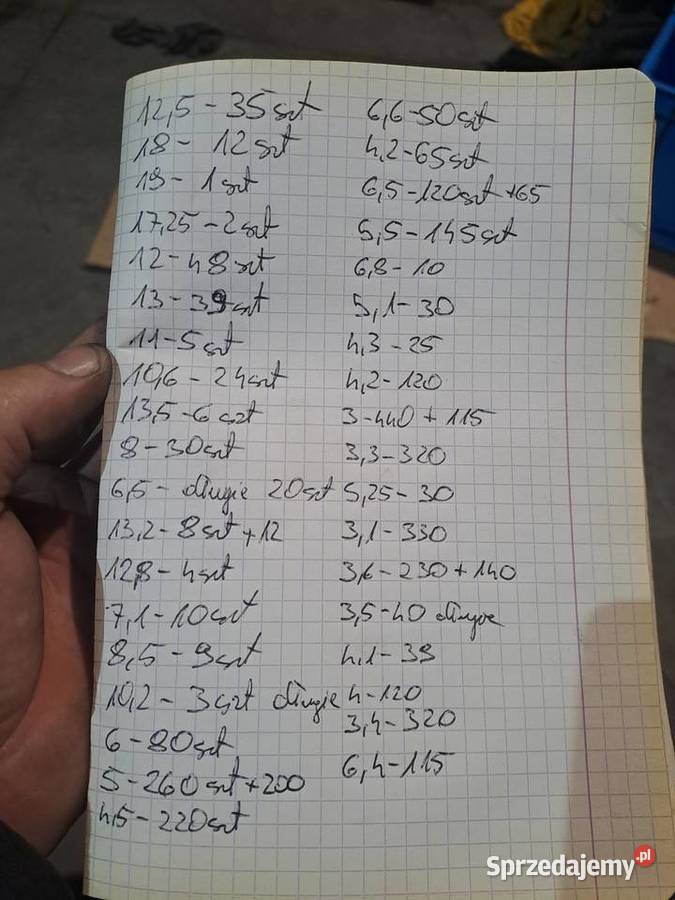 12,5 - 35 szt
18 - 12 szt
19 - 1 szt
17,25 - 2 szt
12 - 48 szt
13 - 39 szt
11 - 5 szt
10,6 - 24 szt
13,5 - 6 szt
8 - 30 szt
6,5 - długie 20 szt
13,2 - 8 szt + 12
12,8 - 4 szt
7,1 - 10 szt
8,5 - 9 szt
10,2 - 3 szt długie
6 - 80 szt
5 - 260 szt + 200
4,5 - 220 szt
6,6 - 50 szt
4,2 - 65 szt
6,5 - 120 szt + 65
5,5 - 145 szt
6,8 - 10
5,1 - 30
4,3 - 25
4,2 - 120
3 - 440 + 115
3,3 - 320
5,25 - 30
3,1 - 330
3,6 - 230 + 140
3,5 - 40 długie
4,1 - 39
4 - 120
3,4 - 320
6,4 - 115
Sprzedajemy.pl